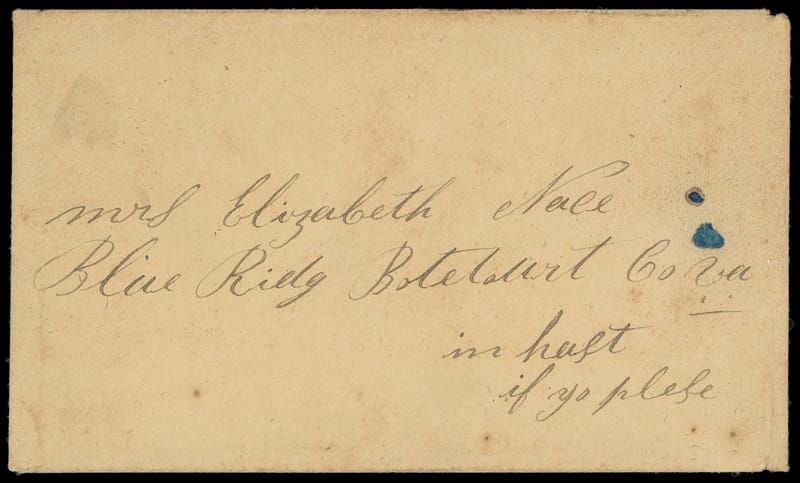 mrs Elizabeth Nace
Blue Ridg Botetourt Co va
in hast
if yo plese